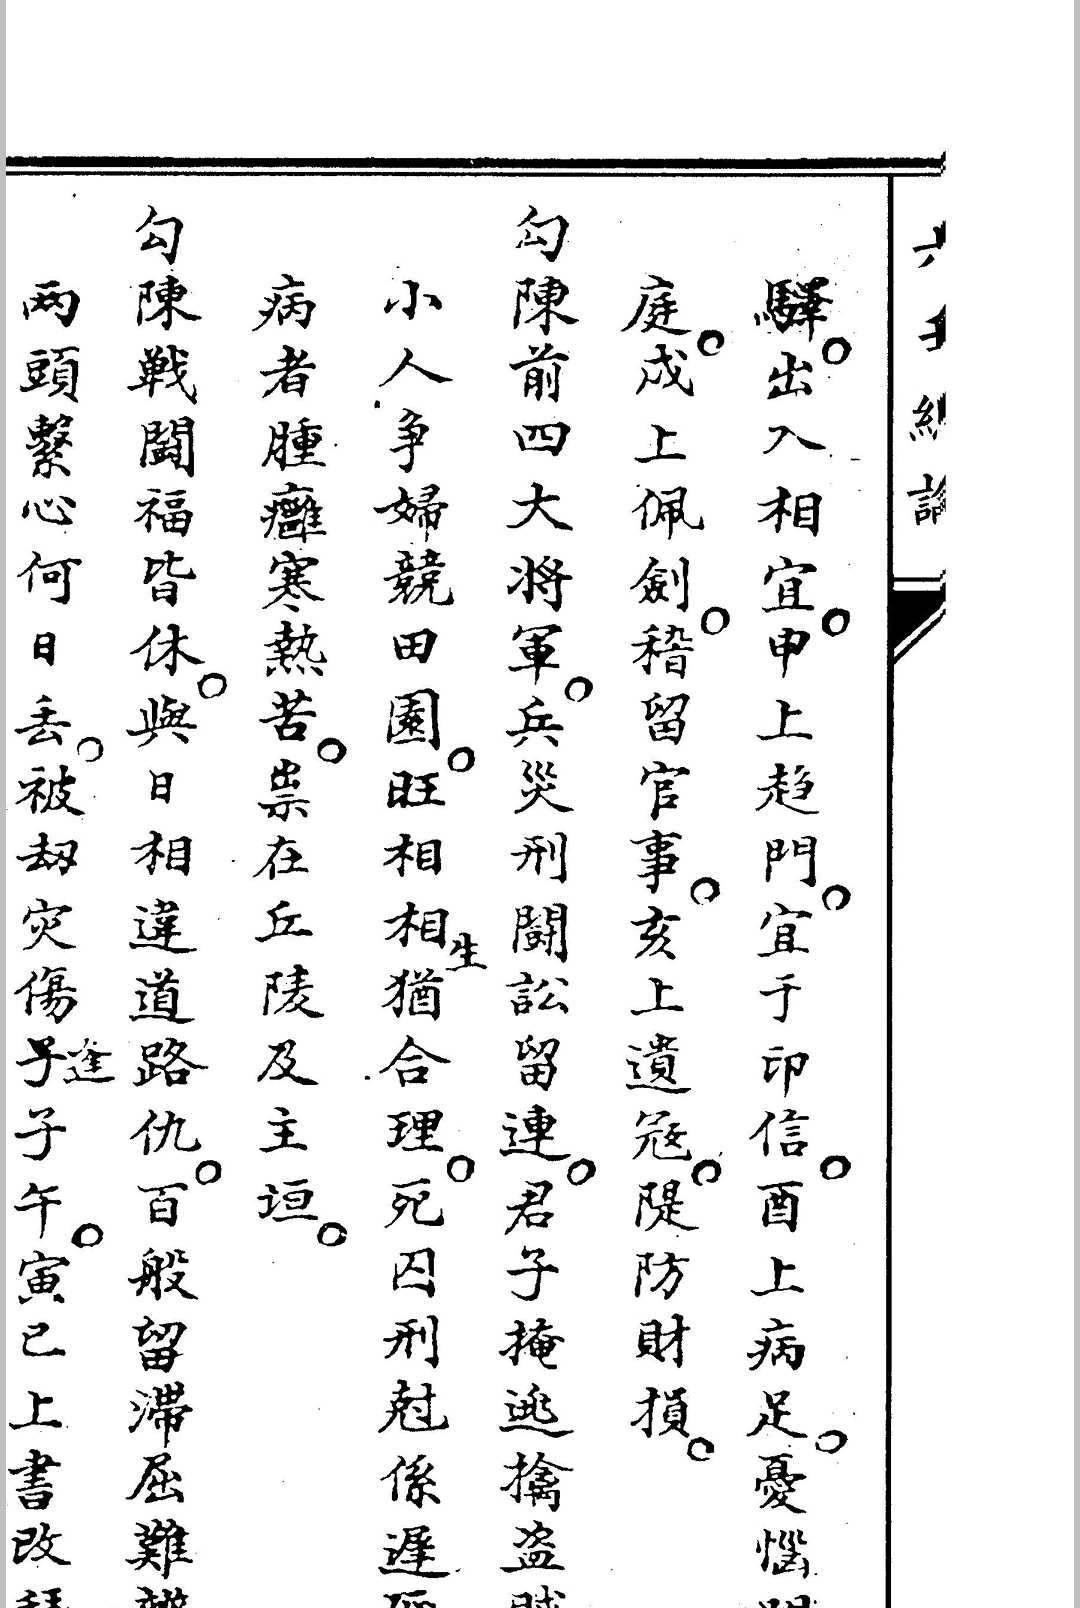 六壬總論
驛出入相宜申上趋門宜于印信酉上病足憂惱
庭戍上佩劍稽留官事亥上遺冠隄防財損
勾陳前四大将軍兵災刑鬪訟留連君子掩逃擒盗賊
小人争婦競田園旺相相生猶合理死囚刑尅係遲
病者腫癰寒熱苦祟在丘陵及主垣
勾陳戦鬪福皆休與日相違道路仇百般留滯屈難
两頭繫心何日丢被刼灾傷逢子午寅巳上書改拜